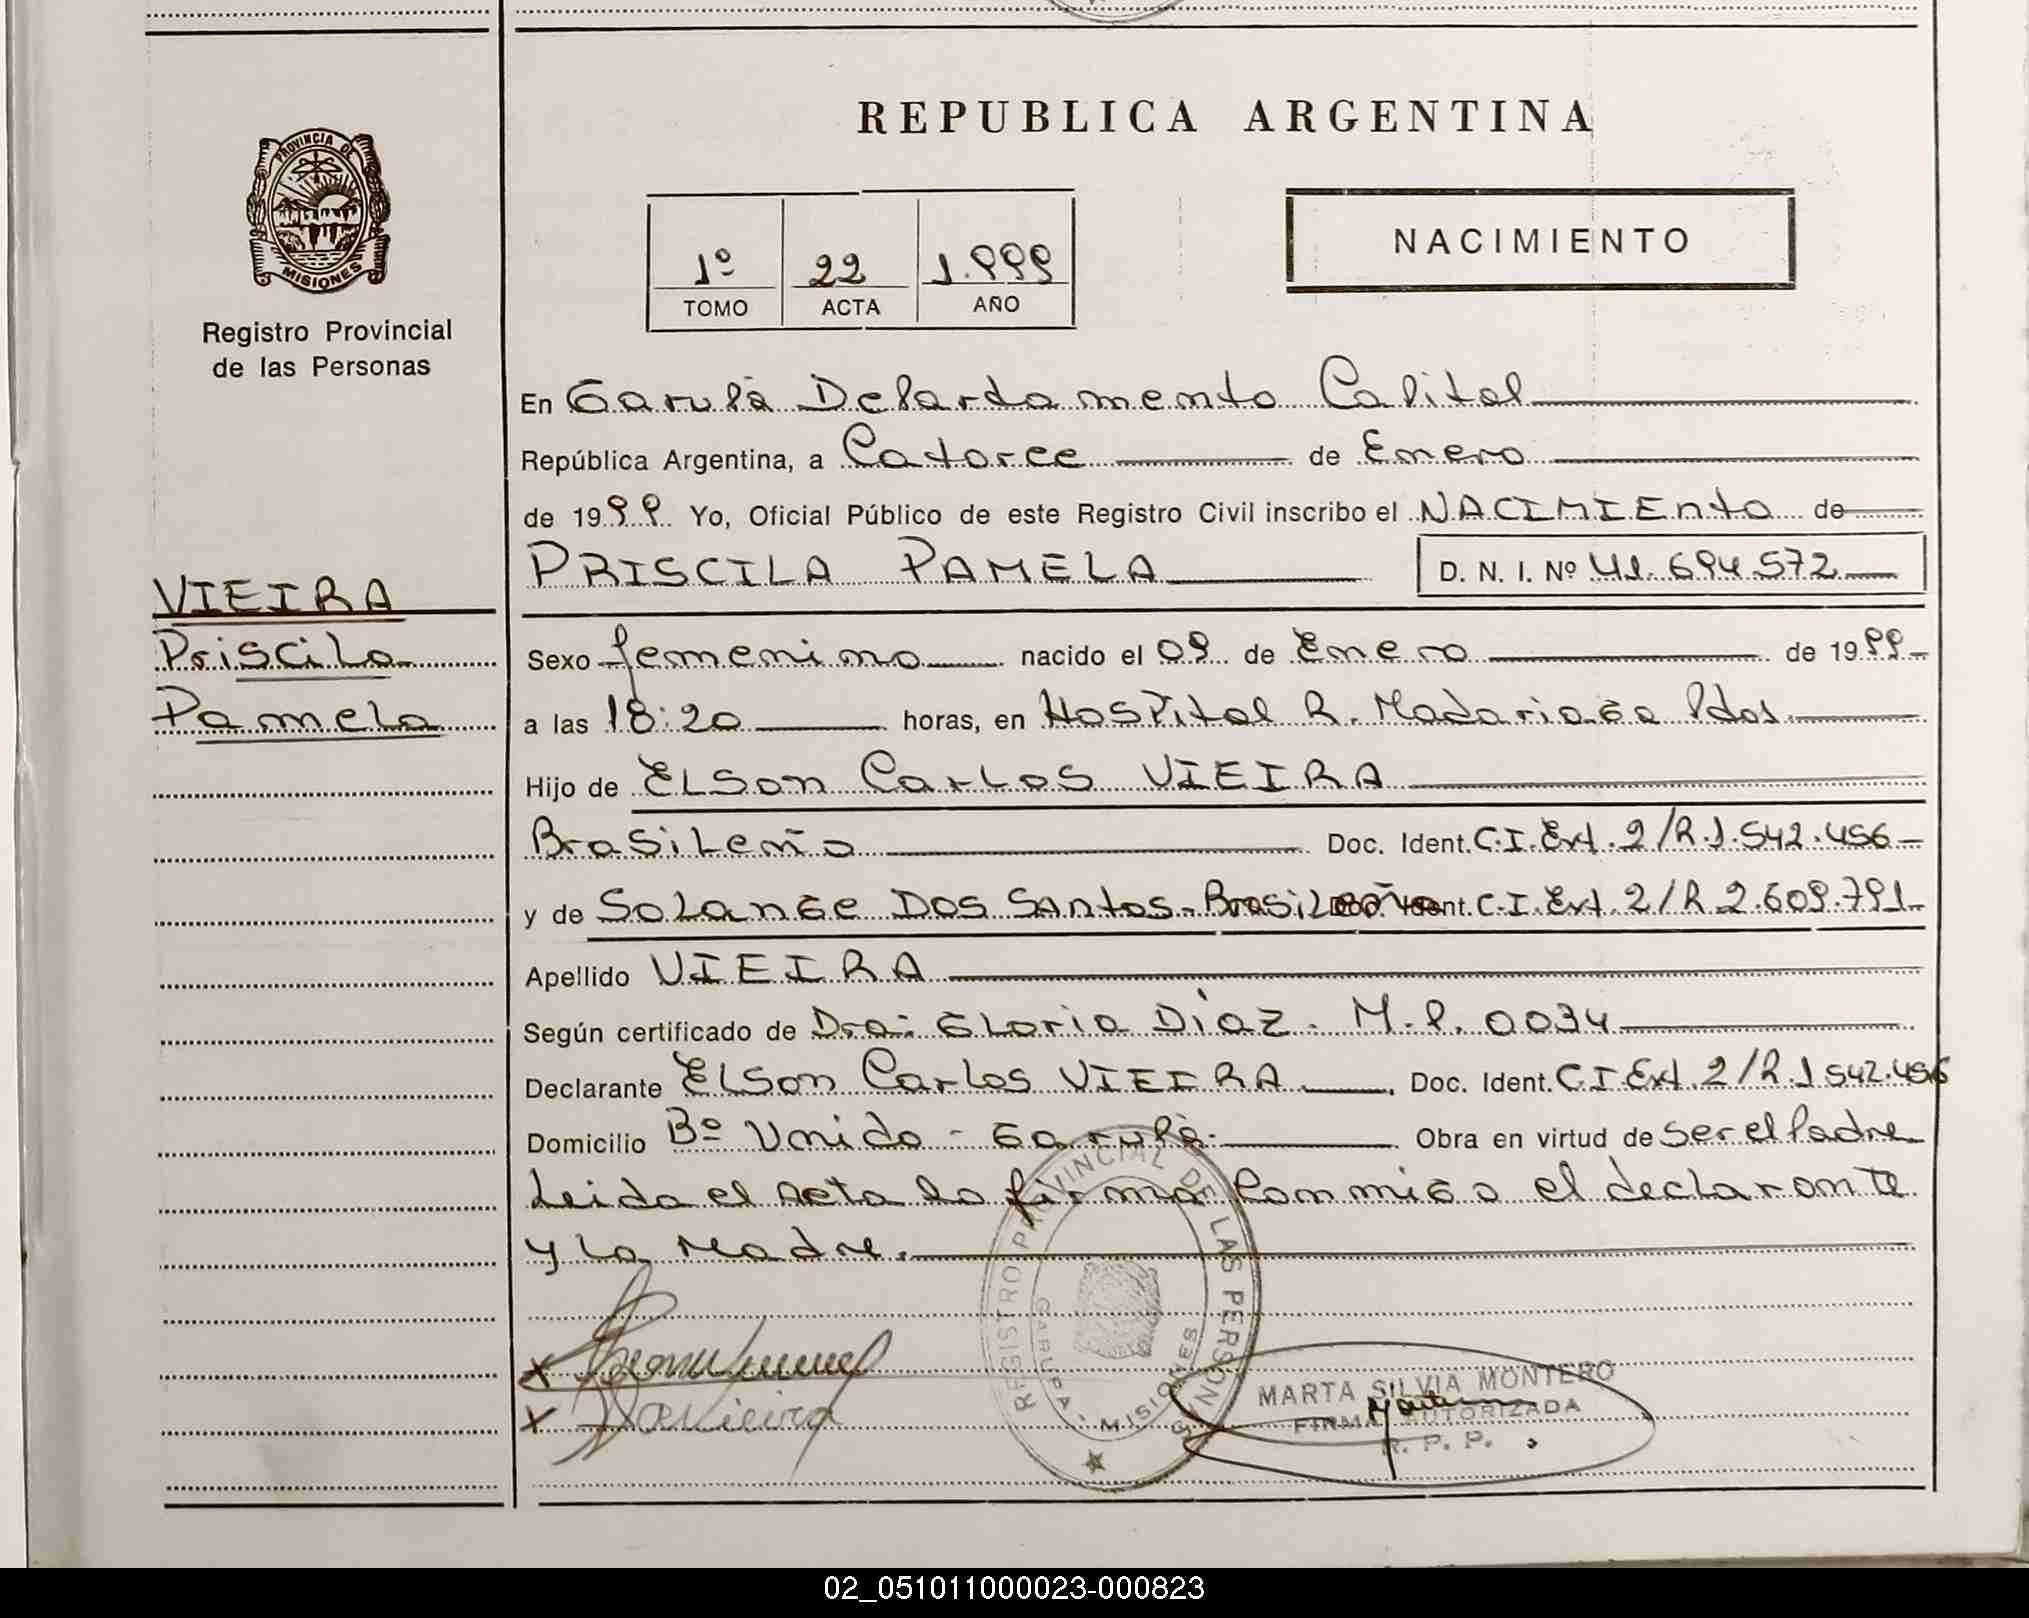 REPUBLICA ARGENTINA
PROVINCIA DE
MISIONES
Registro Provincial
de las Personas
1º 22 1.999
TOMO ACTA AÑO
NACIMIENTO
En Garupá Departamento Capital
República Argentina, a Catorce de Enero
de 1999 Yo, Oficial Público de este Registro Civil inscribo el NACIMIEnto de
VIEIRA
Priscila
Pamela
PRISCILA PAMELA D. N. I. Nº 41.694.572
Sexo femenino nacido el 09 de Enero de 1999
a las 18:20 horas, en Hospital R. Madariaga Pdas.
Hijo de ELson CarLos VIEIRA
BrasiLeño Doc. Ident. C.I. Ext. 2/R.1.542.456
y de SoLange Dos SAntos - BrasiLeña Doc. Ident. C.I. Ext. 2/R 2.609.791
Apellido VIEIRA
Según certificado de Dra. GLoria Díaz. M.P. 0034
Declarante ELson CarLos VIEIRA Doc. Ident. C I Ext. 2/R.1 542.456
Domicilio Bº Unido - Garupá. Obra en virtud de ser el Padre
Leida el Acta la firman Conmigo el declarante
y La Madre.
REGISTRO PROVINCIAL DE LAS PERSONAS
GARUPA - MISIONES
MARTA SILVIA MONTERO
FIRMA AUTORIZADA
R. P. P.
02_051011000023-000823